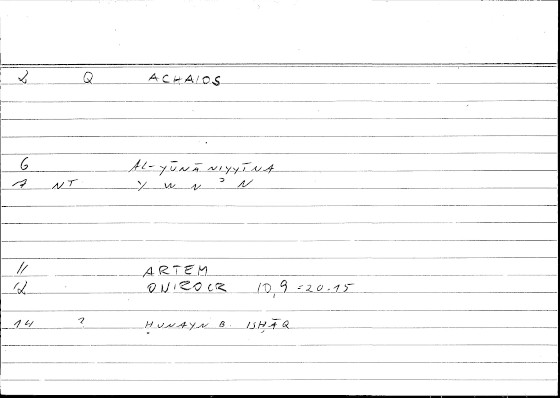 2 Q ACHAIOS
6 AL-YŪNĀNIYYĪNA
7 NT Y W N ʾ N
11 ARTEM
12 ONIROCR 10,9 = 20.15
14 ? ḤUNAYN B. ISḤĀQ